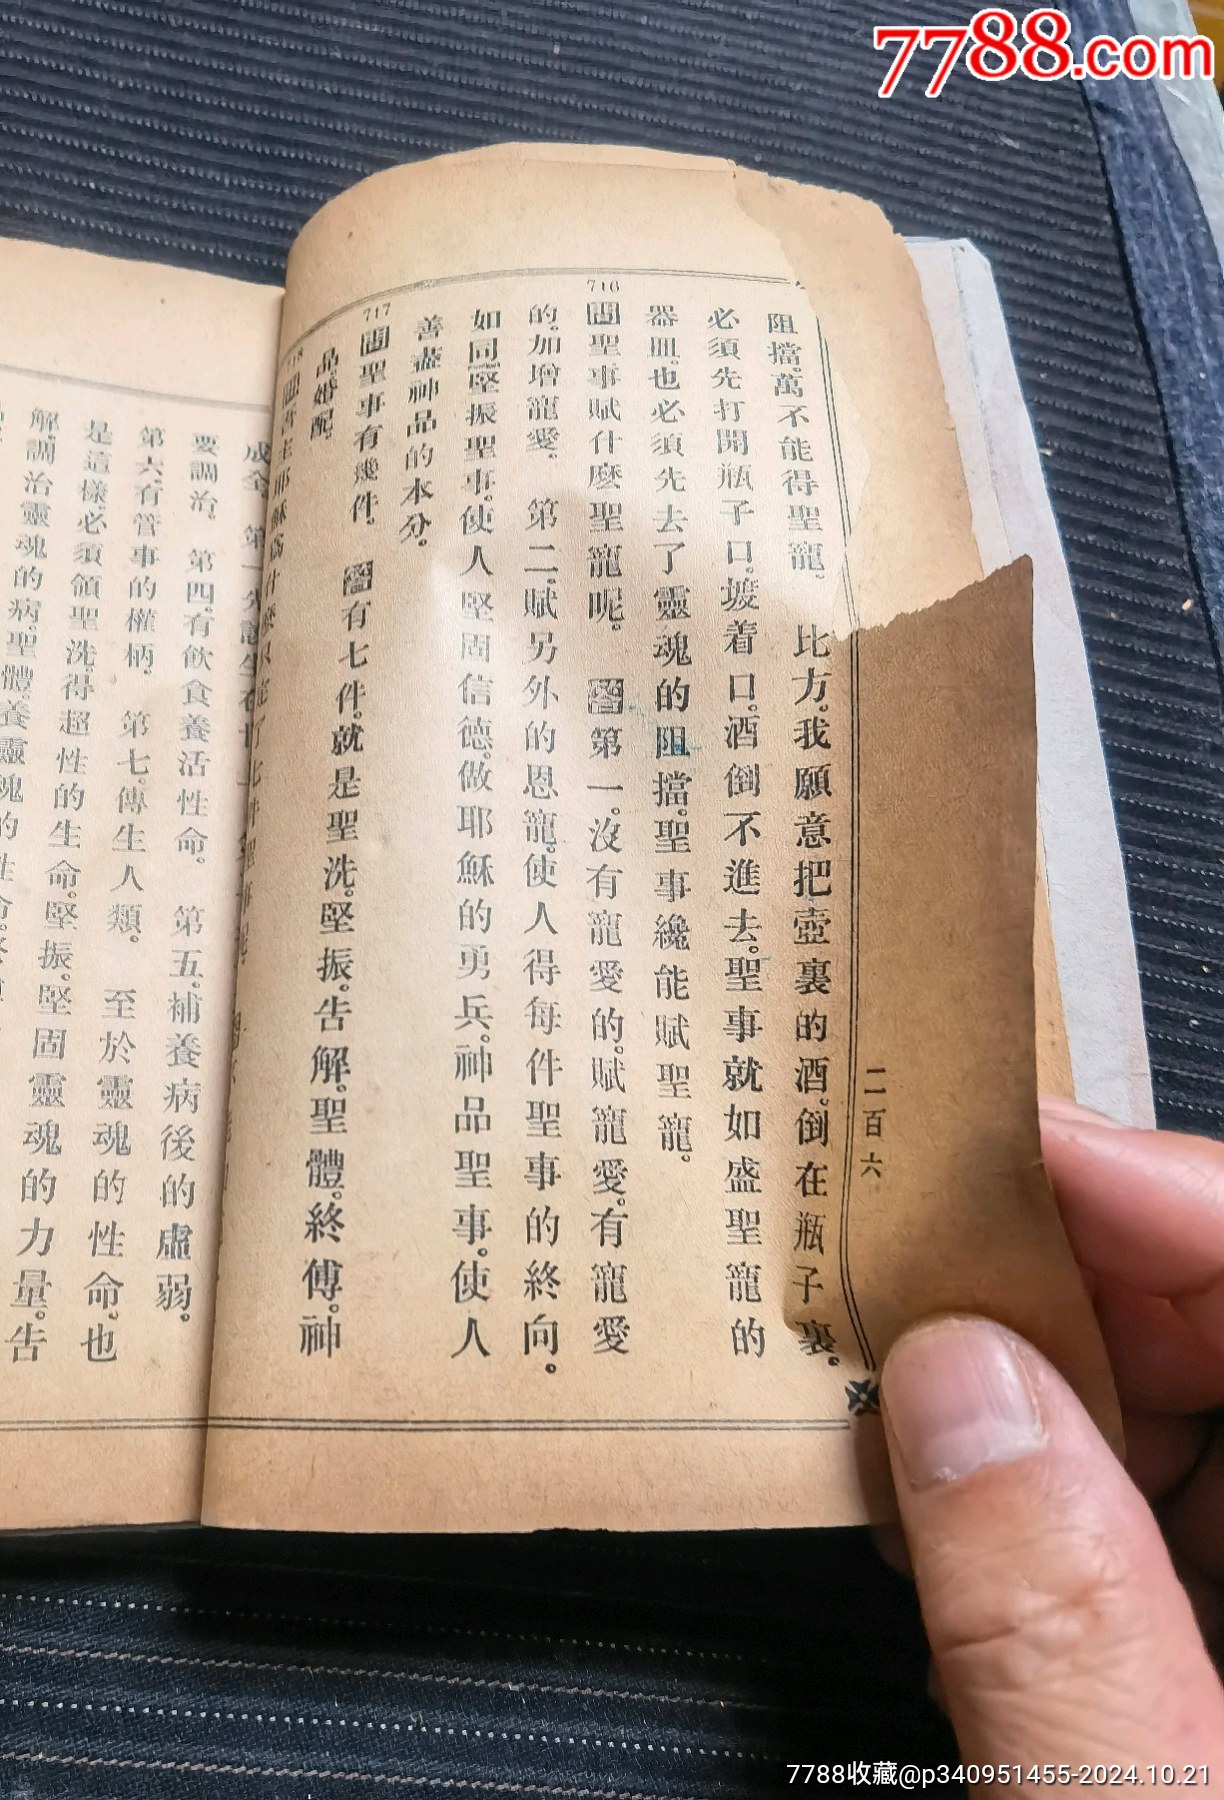 7788.com
二百六
阻擋。萬不能得聖寵。比方。我願意把壺裏的酒。倒在瓶子裏。
必須先打開瓶子口。堵着口。酒倒不進去。聖事就如盛聖寵的
器皿。也必須先去了靈魂的阻擋。聖事纔能賦聖寵。
716
問聖事賦什麼聖寵呢。 答第一。沒有寵愛的。賦寵愛。有寵愛
的。加增寵愛。 第二。賦另外的恩寵。使人得每件聖事的終向。
如同堅振聖事。使人堅固信德。做耶穌的勇兵。神品聖事。使人
善盡神品的本分。
717
問聖事有幾件。 答有七件。就是聖洗。堅振。告解。聖體。終傅。神
品。婚配。
718
要調治。 第四。有飲食養活性命。 第五。補養病後的虛弱。
第六。有管事的權柄。 第七。傳生人類。 至於靈魂的性命。也
是這樣。必須領聖洗。得超性的生命。堅振。堅固靈魂的力量。告
解。調治靈魂的病。聖體。養靈魂的性命。
7788收藏@p340951455-2024.10.21